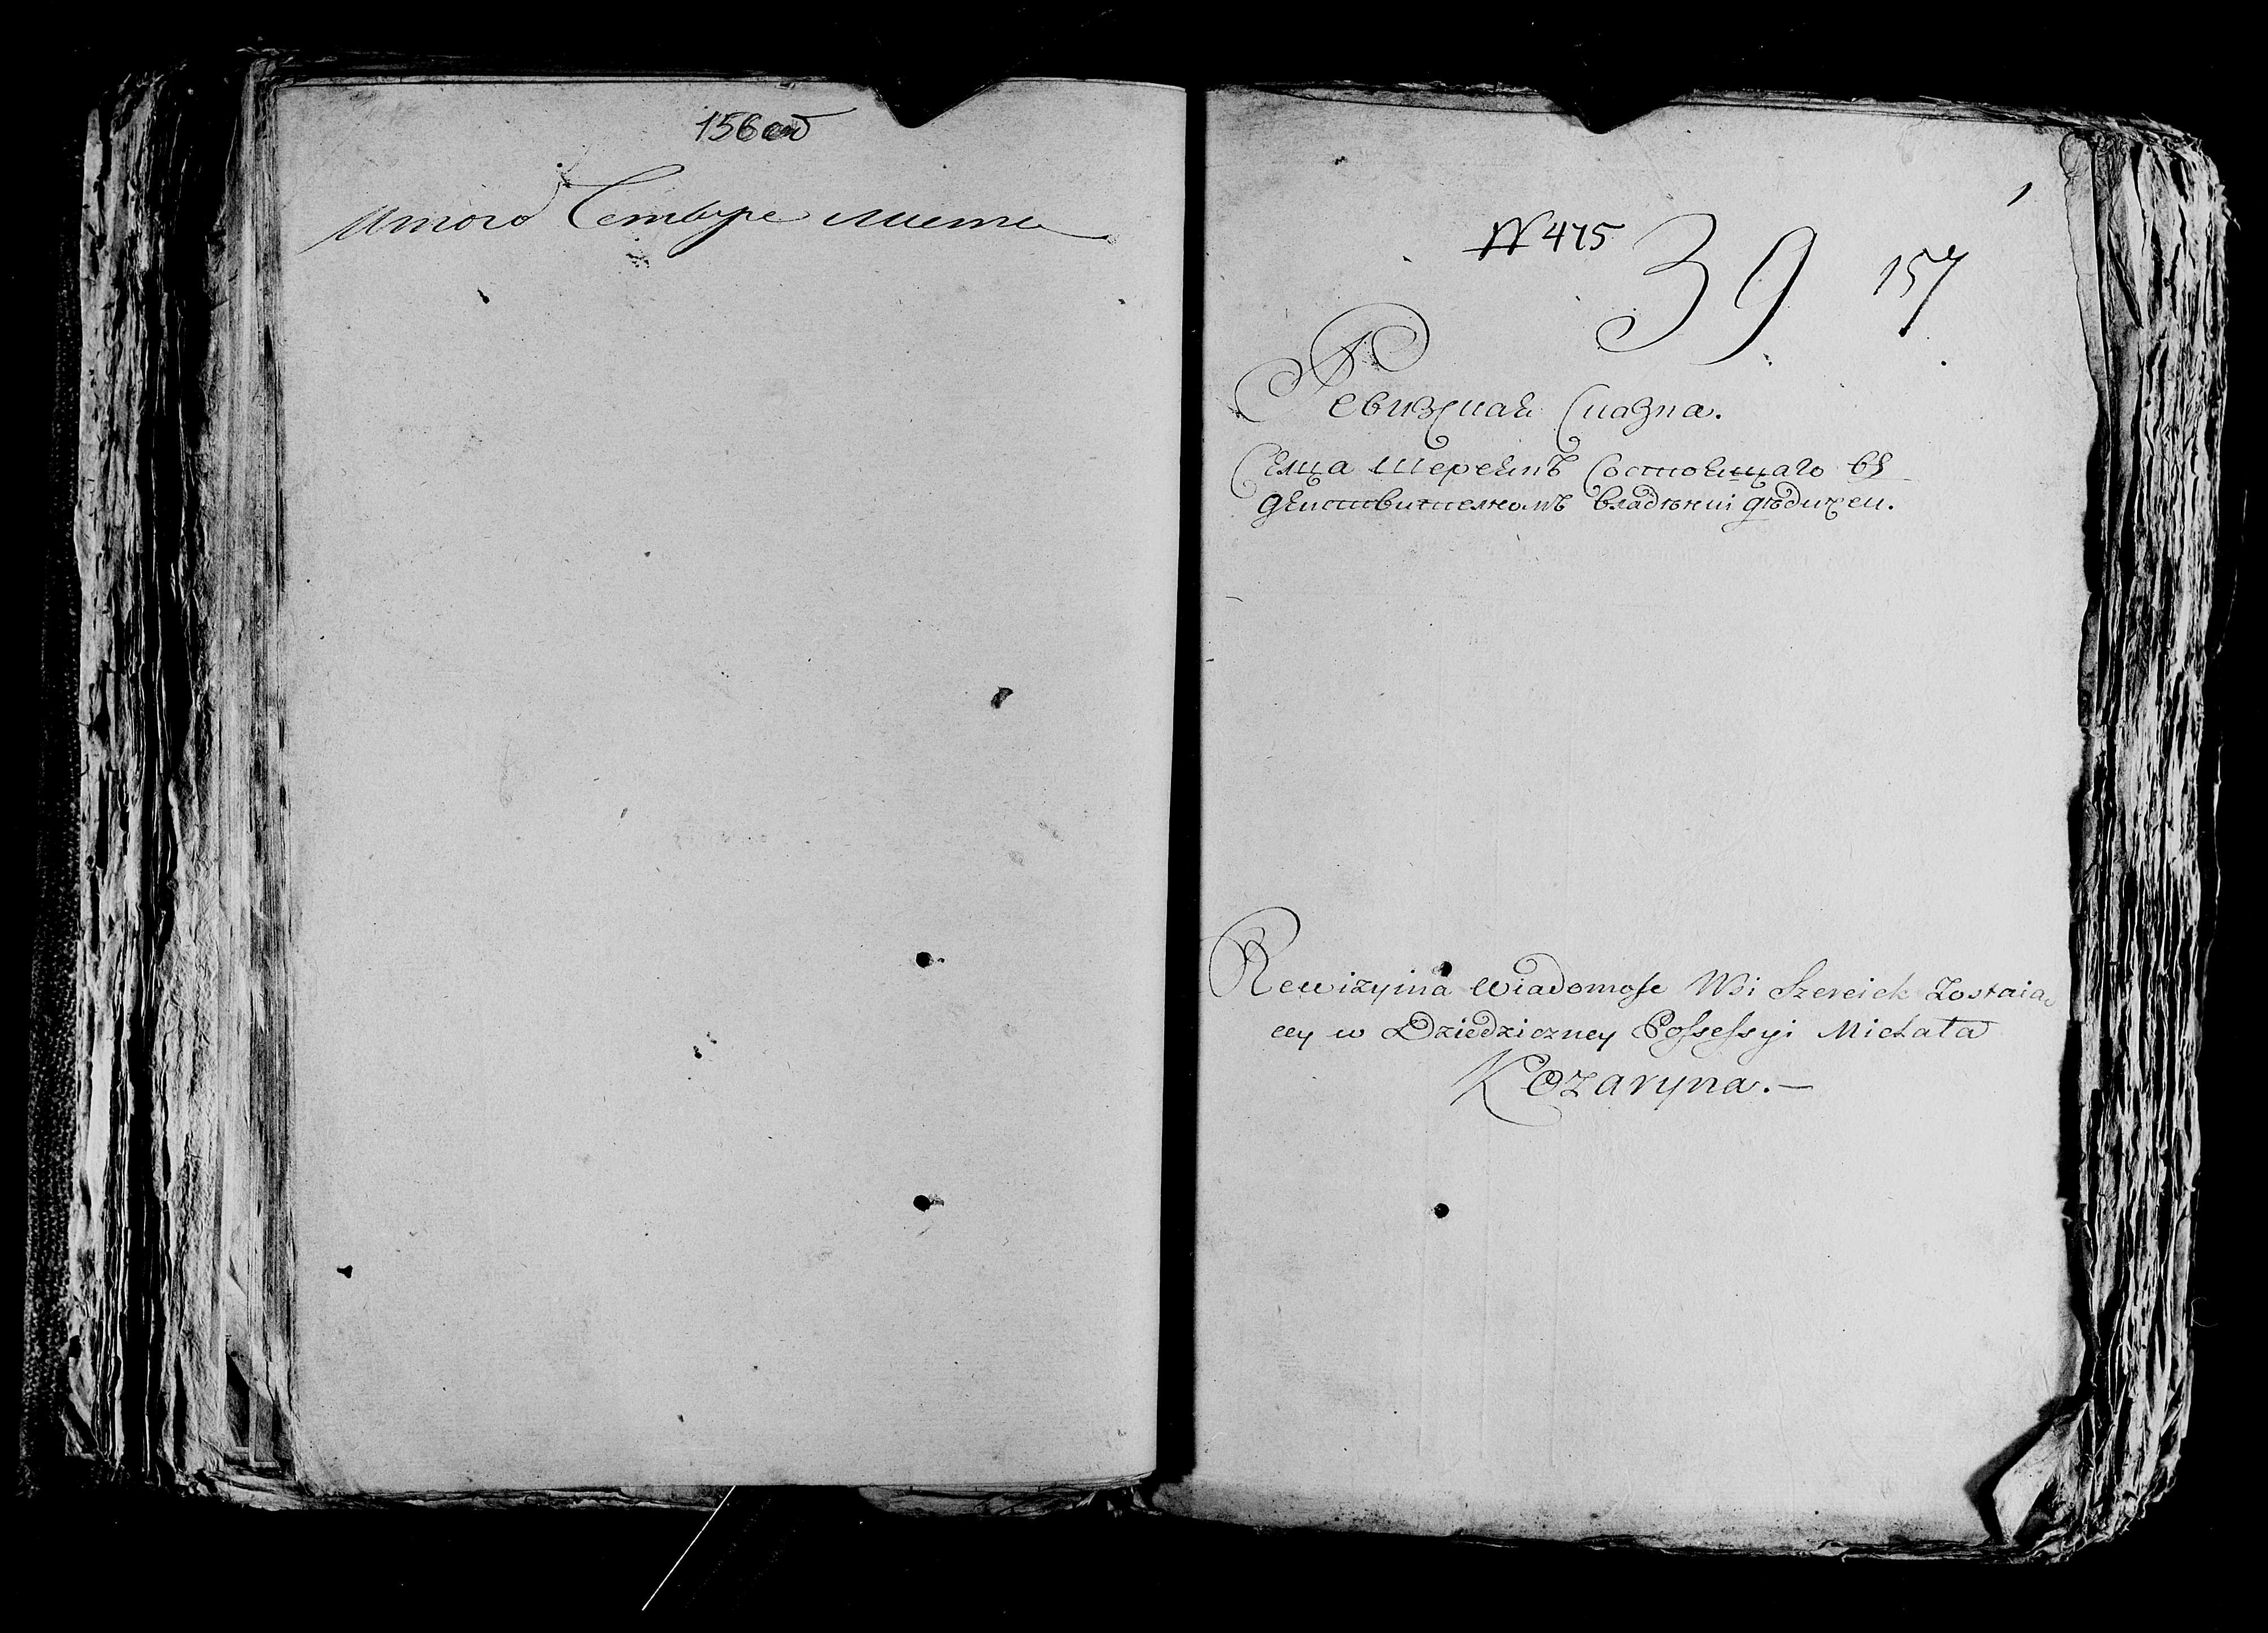 156 об
Итого Четыре листа
1
№ 475
39
157
Ревизская Сказка.
Селца Шереикъ Состоящаго въ
дѣиствителномъ владѣнии дѣдичеи.
Rewizyina Wiadomosc Wsi Szereiek Zostaia-
cey w Dziedziczney Possessyi Michała
Kozaryna.—